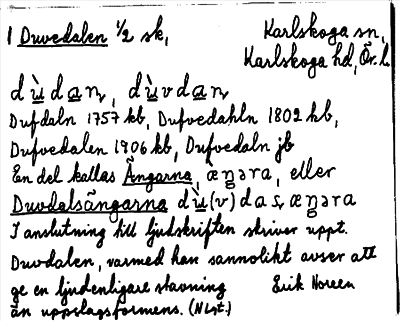 1 Duvedalen 1/2 sk,
Karlskoga sn,
Karlskoga hd, Ör. l.
dùdaɳ, dùvdaɳ
Dufdaln 1757 kb, Dufvedahln 1802 hb,
Dufvedalen 1906 kb, Dufvedaln jb
En del kallas Ängarna, æŋəra, eller
Duvdalsängarna dù(v)dasæŋəra
I anslutning till ljudskriften skriver uppt.
Duvdalen, varmed han sannolikt avser att
ge en ljudenligare stavning
än uppslagsformens. (N Lst.)
Erik Noreen